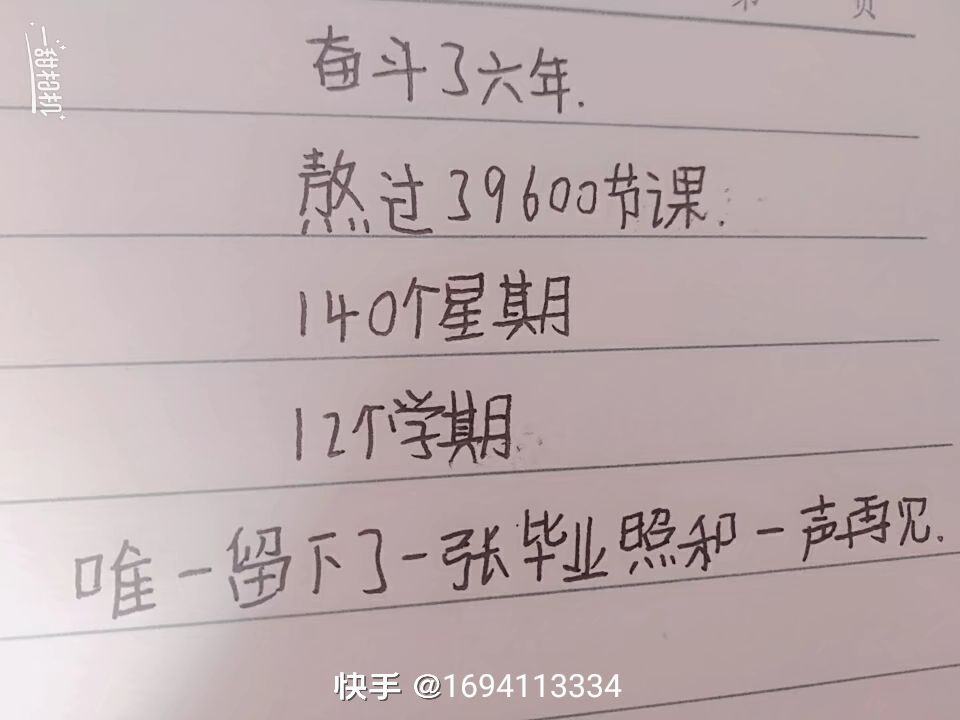 第 页
一甜相机
奋斗了六年.
熬过39600节课.
140个星期
12个学期.
唯一留下了一张毕业照和一声再见.
快手 @1694113334